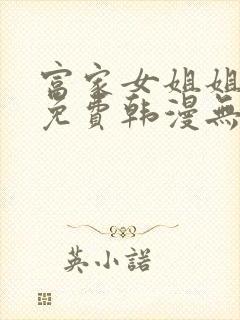 富家女姐姐
免費韩漫無
英小諾